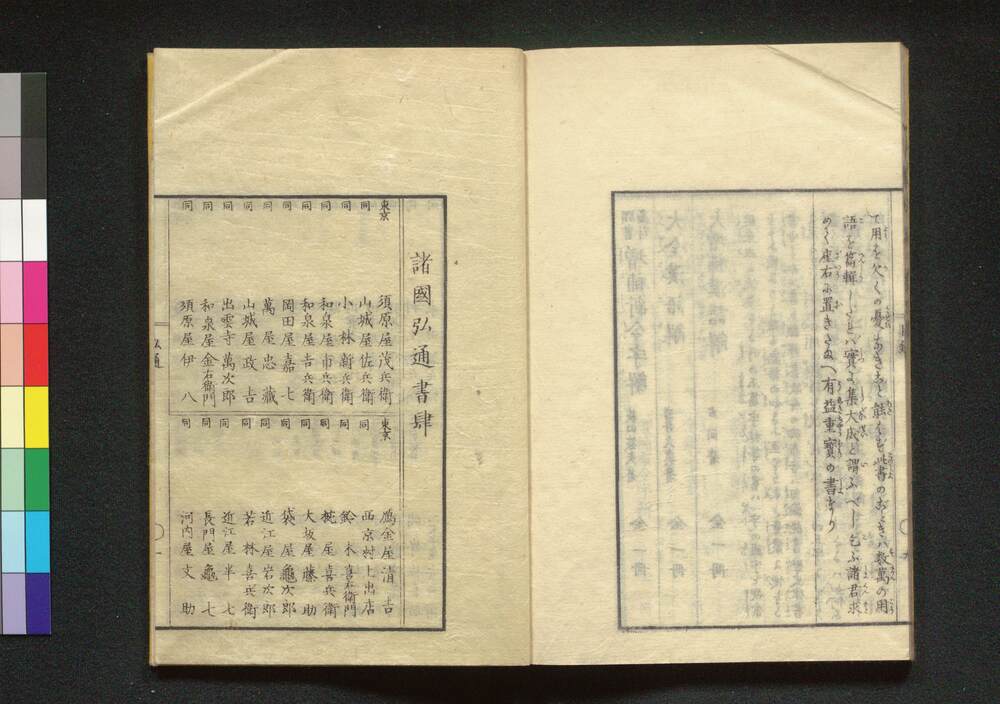 て用を欠くの憂なきこと能くも此書のおときハ数萬の用
語を蒐輯したれハ實よ集大成と謂ふべし乞ふ諸君求
めて座右に置きたまへ有益重寳の書なり
諸國弘通書肆
東京 須原屋茂兵衛
同 山城屋佐兵衛
同 小林新兵衛
同 和泉屋市兵衛
同 和泉屋吉兵衛
同 岡田屋嘉七
同 萬屋忠藏
同 山城屋政吉
同 出雲寺萬次郎
同 和泉屋金右衛門
同 須原屋伊八
東京 鴈金屋清吉
同 西京村上出店
同 鈴木喜右衛門
同 椀屋喜兵衛
同 大坂屋藤助
同 袋屋亀次郎
同 近江屋岩次郎
同 若林喜兵衛
同 近江屋半七
同 長門屋亀七
同 河内屋文助
弘通